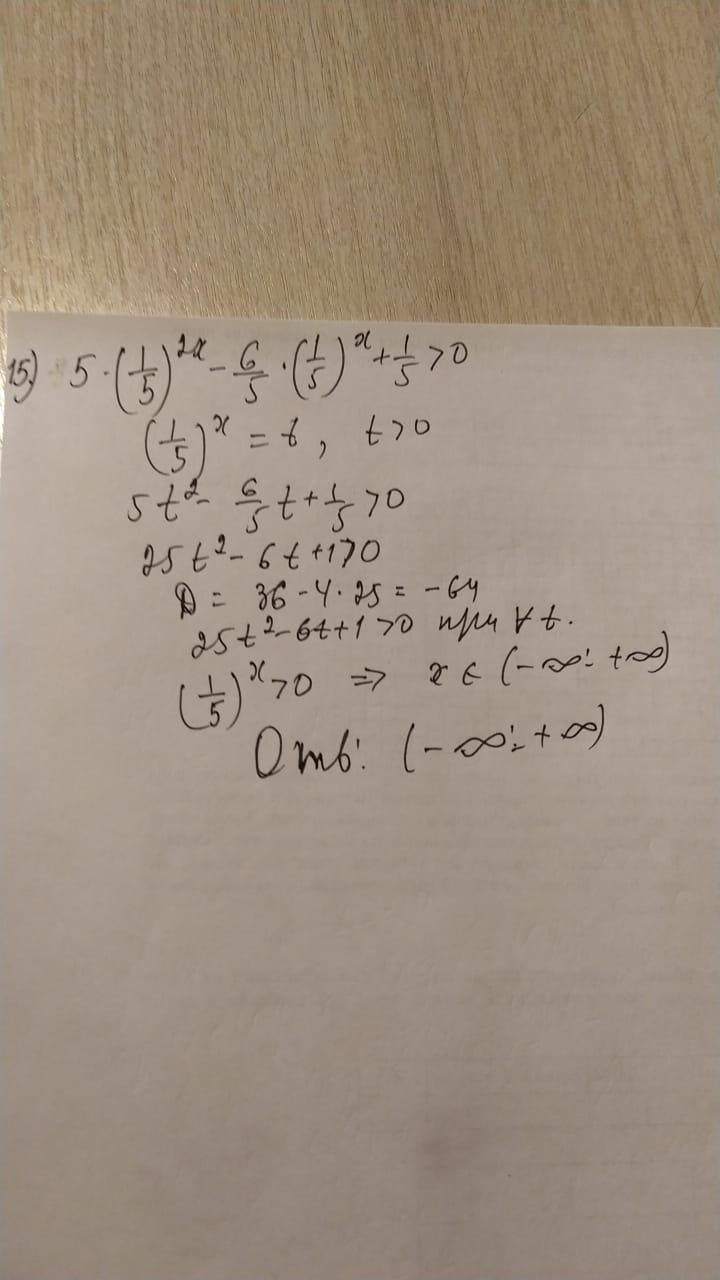 15) 5·(1/5)^2x - 6/5·(1/5)^x + 1/5 > 0
(1/5)^x = t, t>0
5t² - 6/5 t + 1/5 > 0
25t² - 6t + 1 > 0
D = 36 - 4·25 = -64
25t² - 6t + 1 > 0 при ∀ t.
(1/5)^x > 0 => x ∈ (-∞; +∞)
Отв: (-∞; +∞)